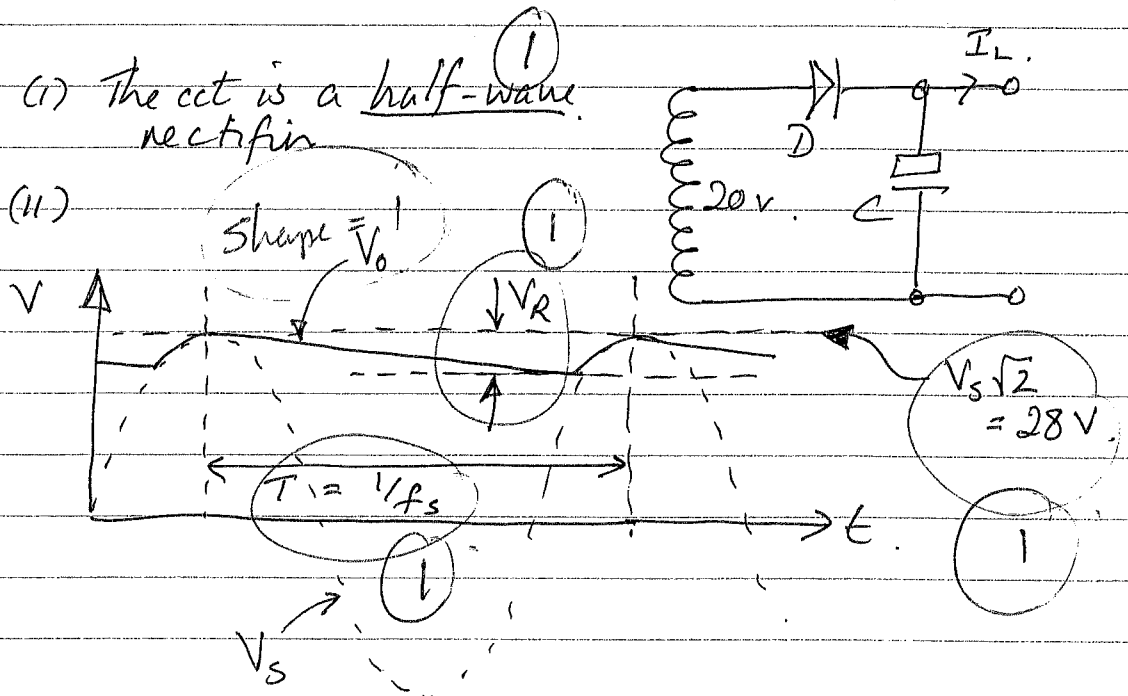 1
(I) The cct is a half-wave
rectifier
I_L.
D
20 v.
C
(II)
Shape = 1
V_o
1
V
V_R
V_S √2
= 28 V.
T = 1/f_s
t.
1
1
V_S